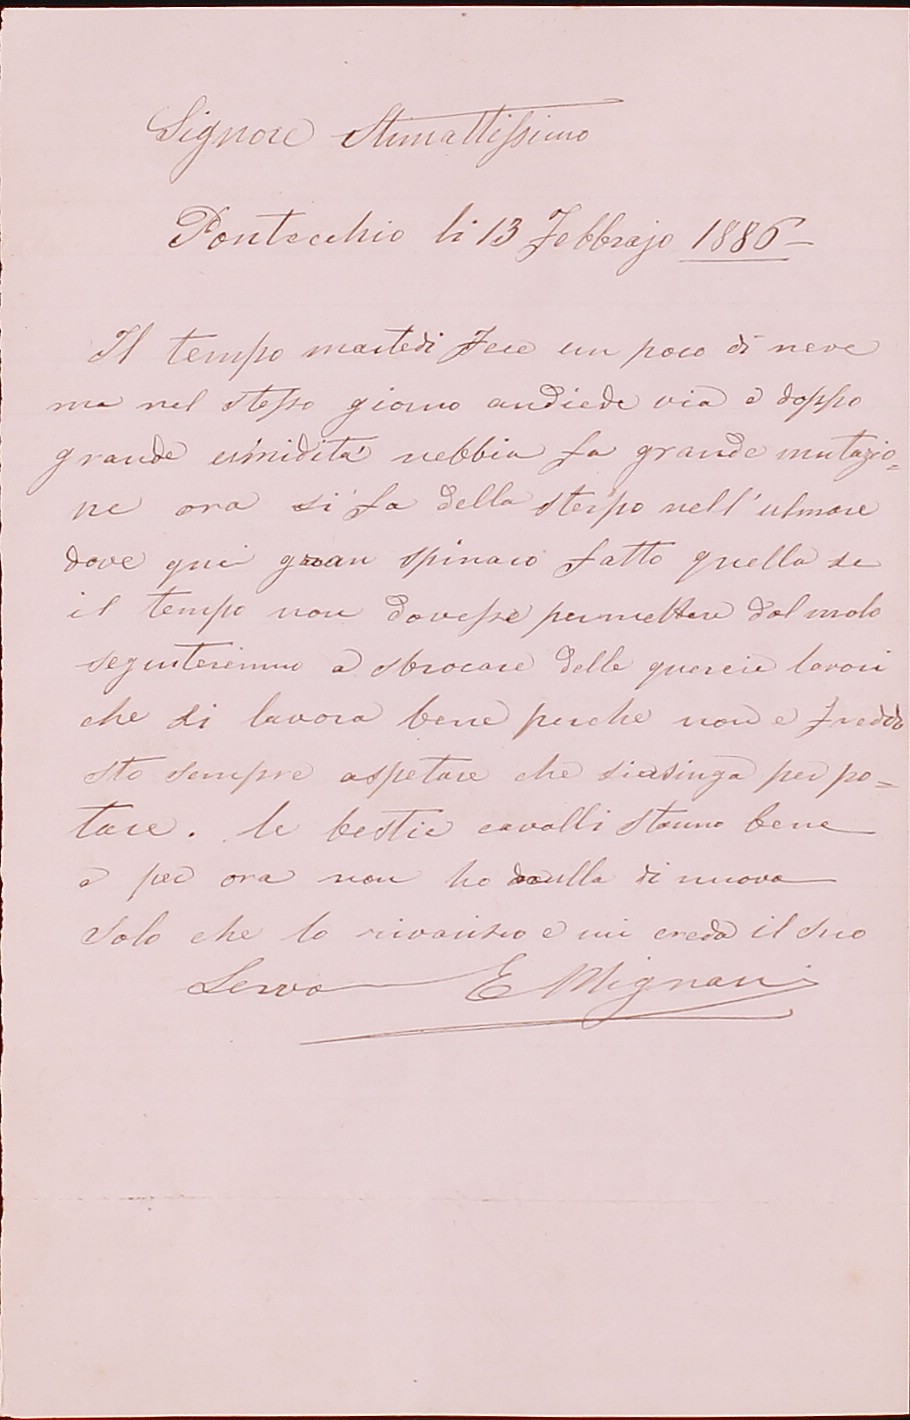 Signore Stimattissimo
Pontecchio li 13 Febbrajo 1886
Il tempo martedi fece un poco di neve
ma nel stesso giorno andiede via e doppo
grande uimidità nebbia fa grande mutazio=
ne ora si fa della sterpo nell'ulmare
dove qui gran spinaio fatto quella se
il tempo non dovesse permettere dal molo
seguiteremo a sbrocare delle quercie lavori
che si lavora bene perche non e freddo
sto sempre aspetare che siasinga per po=
tare. le bestie cavalli stanno bene
e per ora non ho nulla di nuovo
Solo che lo riverisco e mi creda il suo
Servo E Mignani